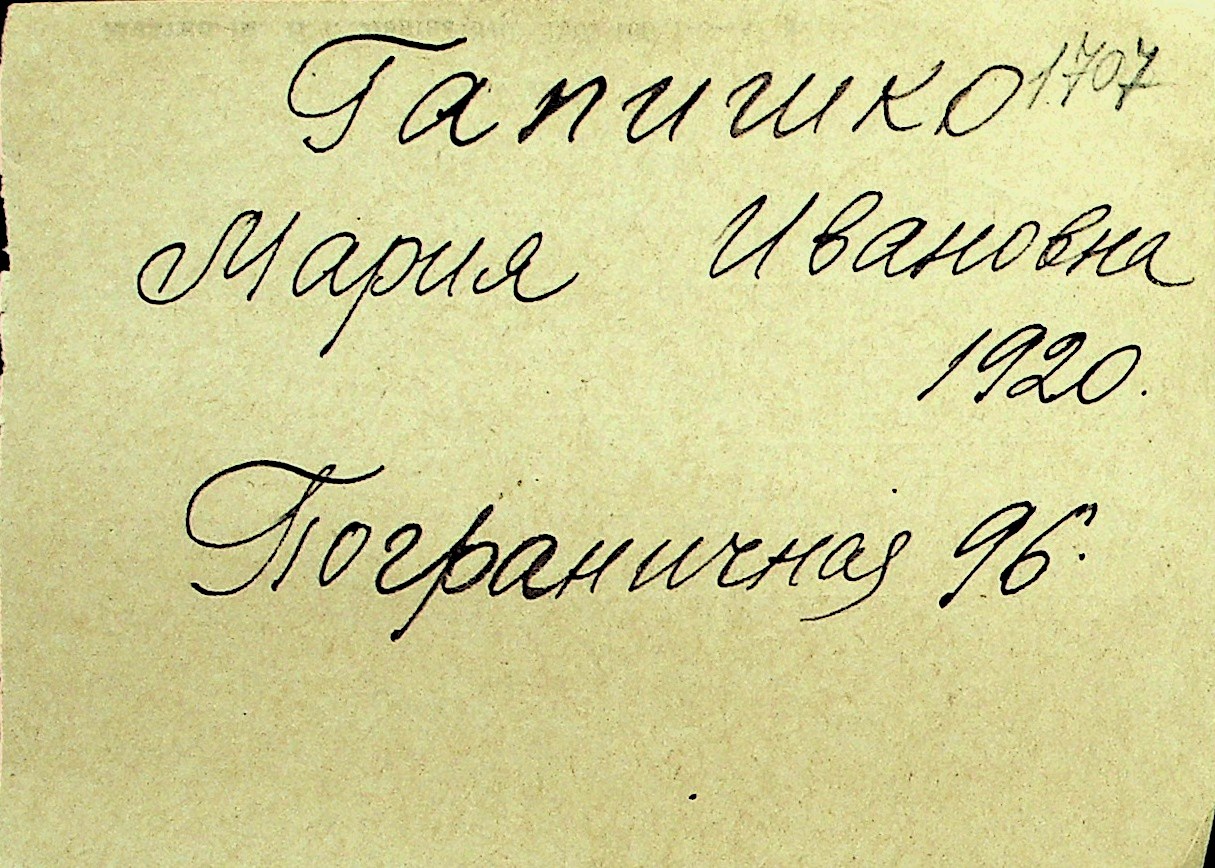 Гапишко 1707
Мария Ивановна
1920.
Пограничная 96.